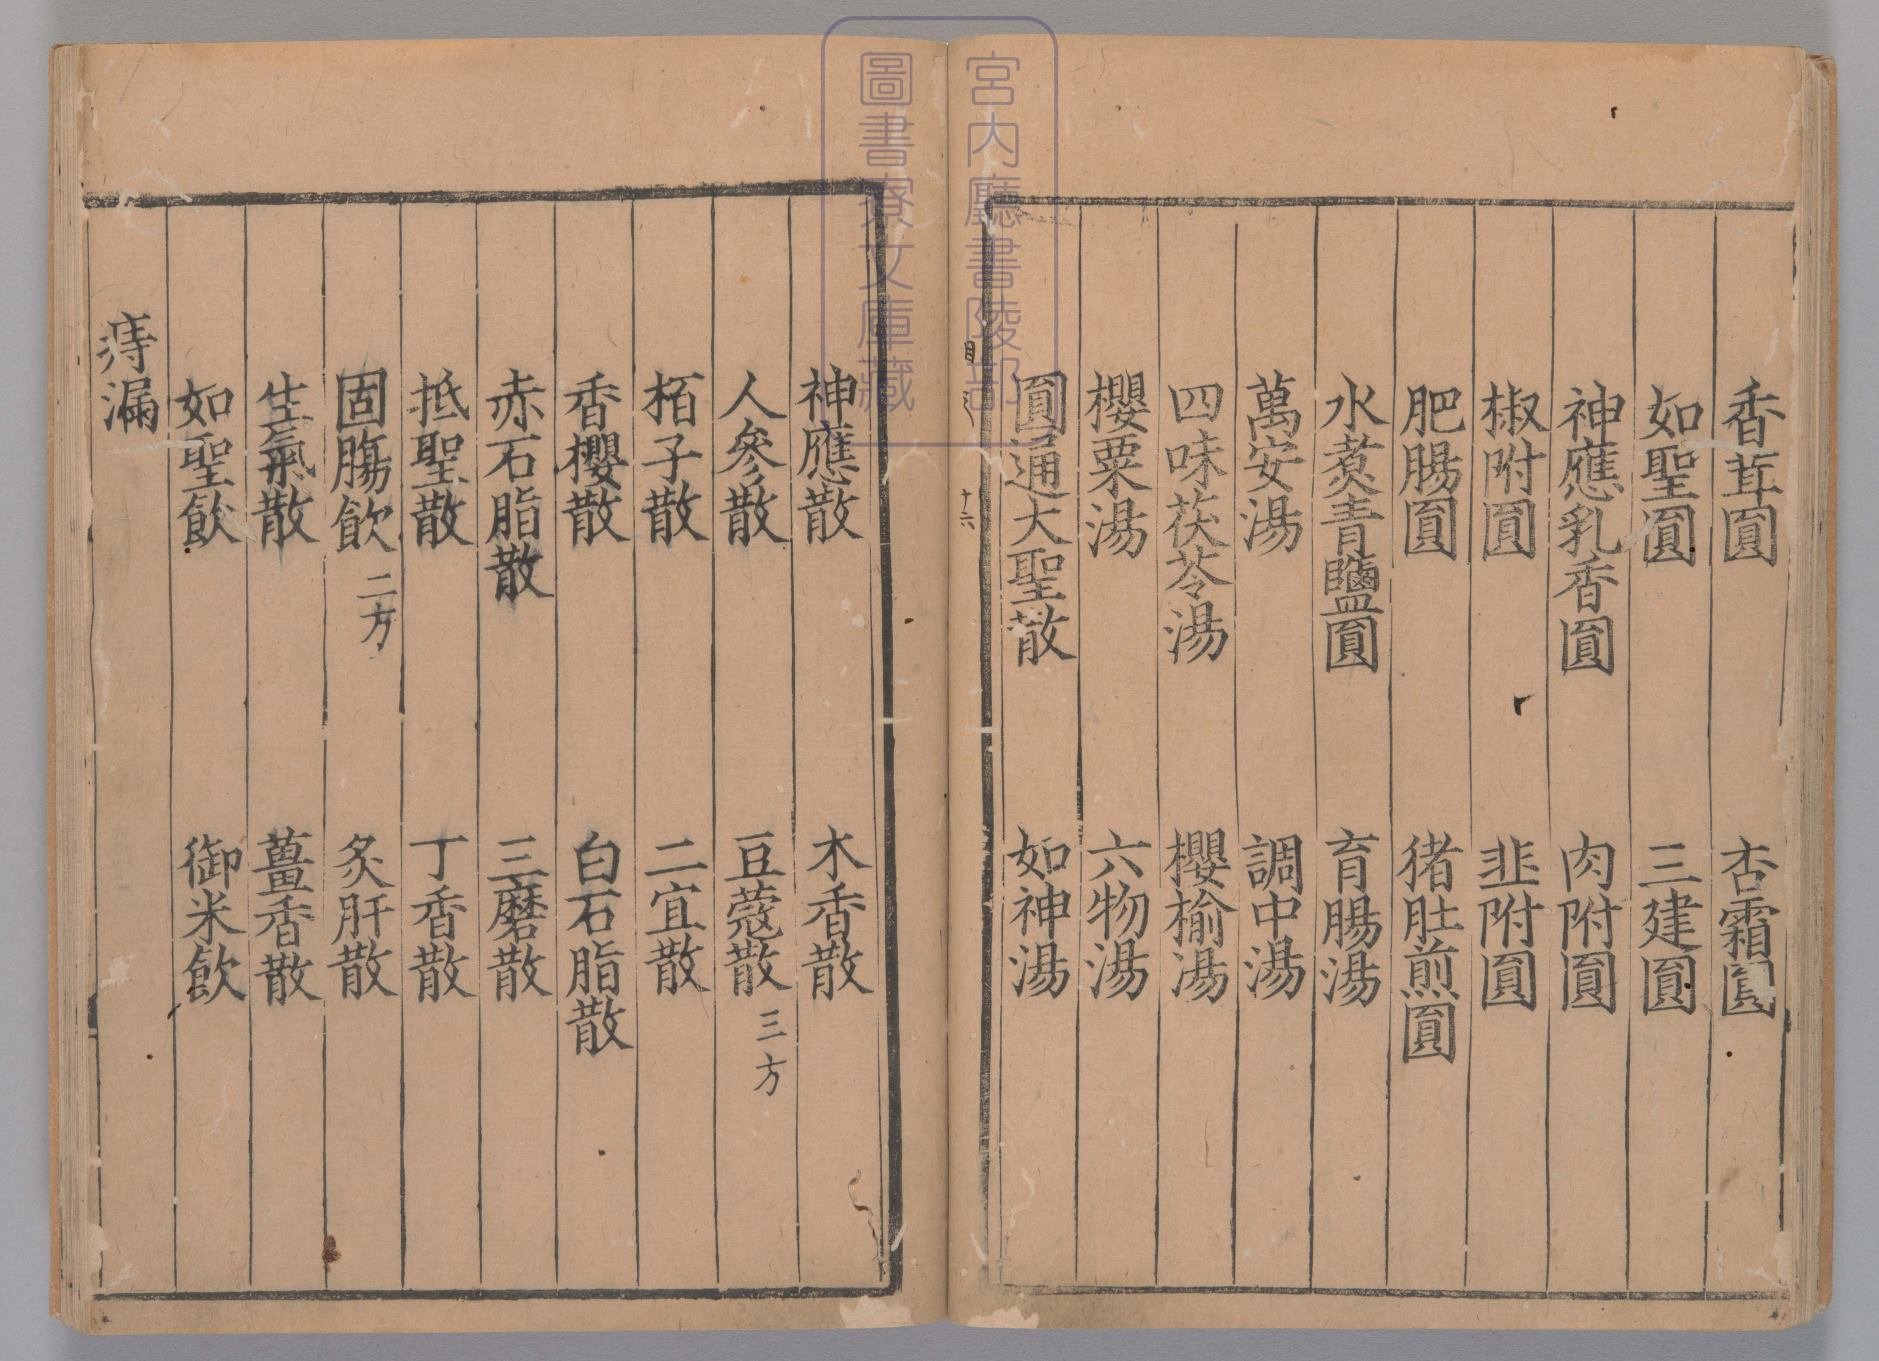 宮內廳書陵部
圖書寮文庫藏
香茸圓 杏霜圓
如聖圓 三建圓
神應乳香圓 肉附圓
椒附圓 韭附圓
肥腸圓 猪肚煎圓
水煮青鹽圓 育腸湯
萬安湯 調中湯
四味茯苓湯 櫻榆湯
櫻粟湯 六物湯
圓通大聖散 如神湯
目 十六
神應散 木香散
人參散 豆蔻散 三方
栢子散 二宜散
香櫻散 白石脂散
赤石脂散 三磨散
抵聖散 丁香散
固腸飲 二方 炙肝散
生氣散 薑香散
如聖飲 御米飲
痔漏